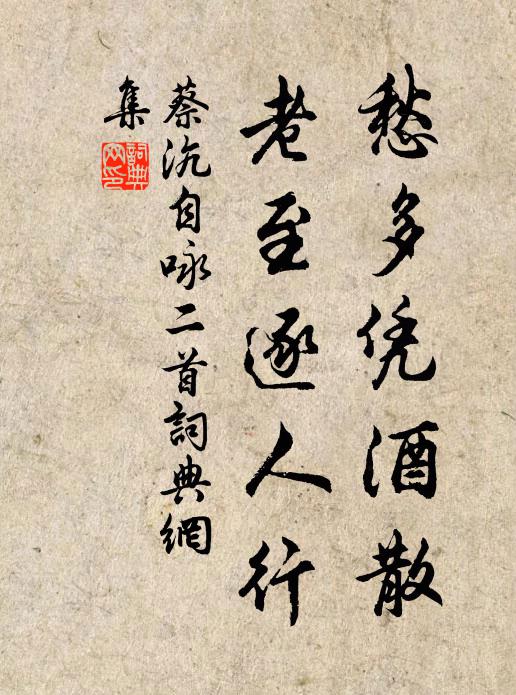 愁多凭酒散
老至逐人行
蔡沈自咏二首詞典網
集
詞典網印